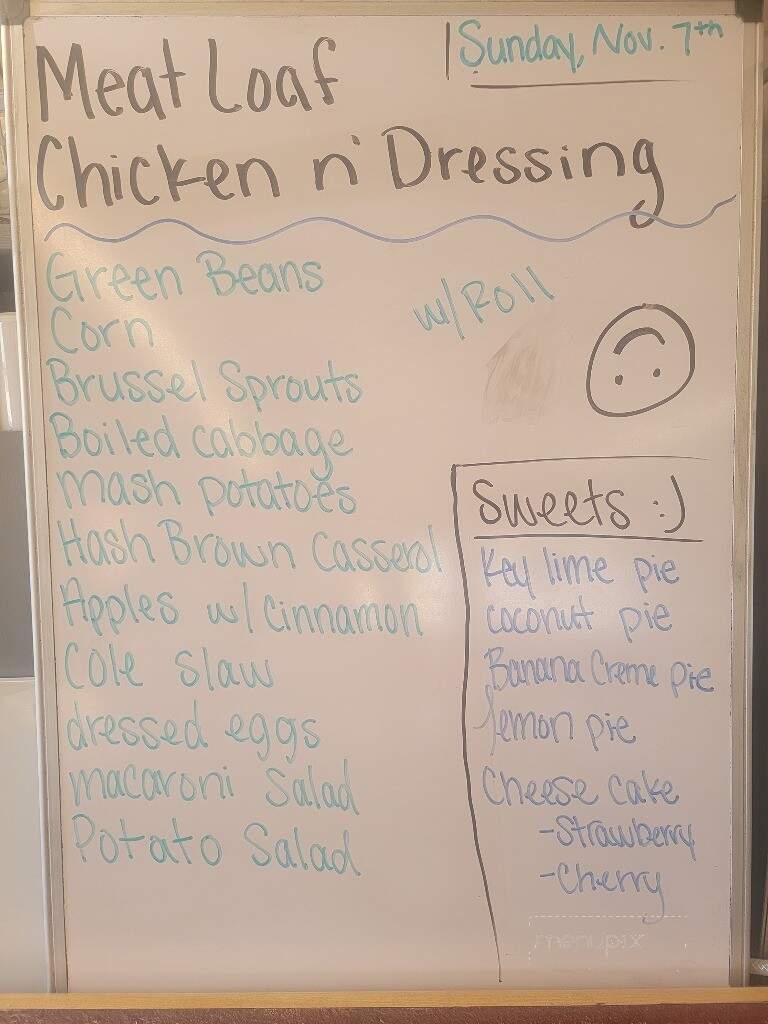 Sunday, Nov. 7th
Meat Loaf
Chicken n' Dressing
Green Beans
w/ Roll
Corn
Brussel Sprouts
Boiled cabbage
Mash potatoes
Hash Brown Casserol
Apples w/ Cinnamon
Cole Slaw
dressed eggs
macaroni Salad
Potato Salad
Sweets :)
Key lime pie
coconut pie
Banana Creme pie
lemon pie
Cheese cake
-Strawberry
-Cherry
menupix